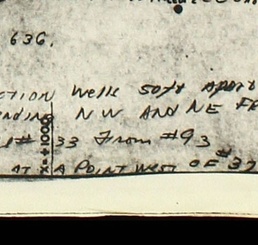 636.
CTION Wells 50ft Apart
NW AND NE
33 From #93
AT A POINT WEST OF #37
X=+1000